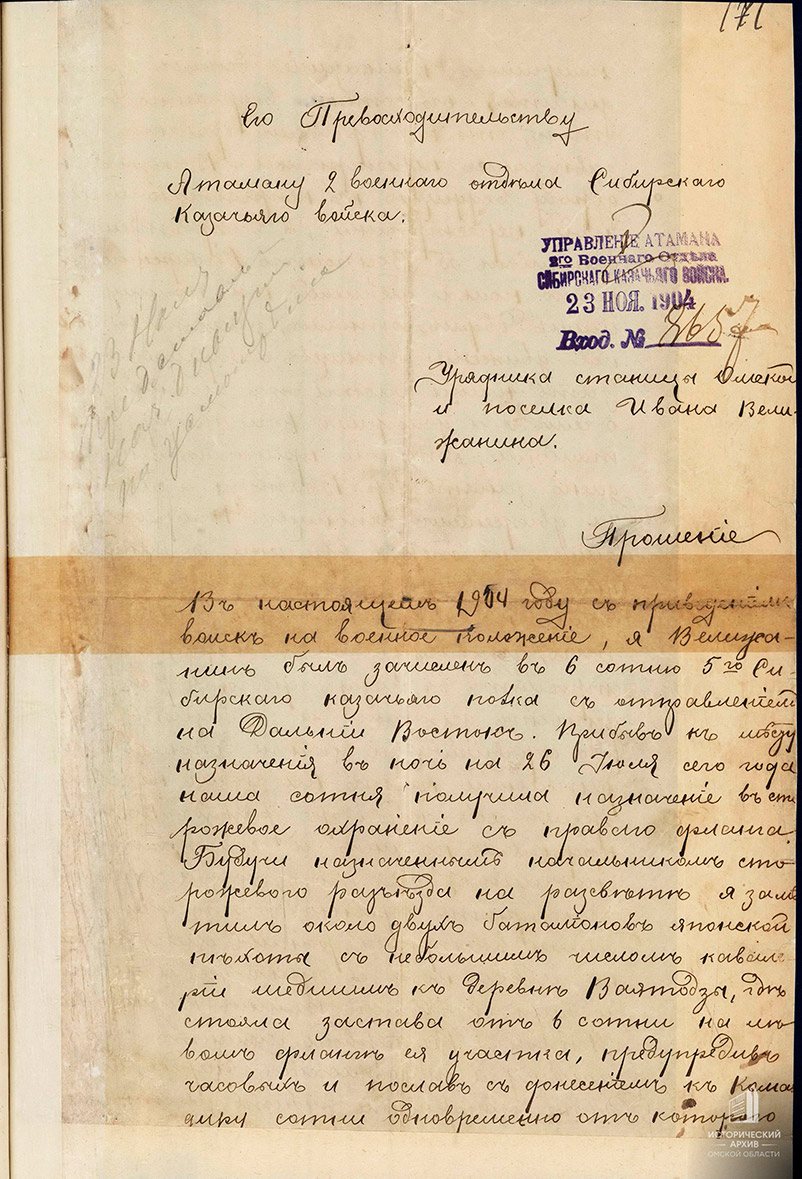 171
Его Превосходительству
Атаману 2 военнаго отдѣла Сибирскаго
Казачьяго войска.
УПРАВЛЕНІЕ АТАМАНА
2го Военнаго Отдѣла
СИБИРСКАГО КАЗАЧЬЯГО ВОЙСКА.
23 НОЯ. 1904
Вход. № 8657
Урядника станицы Омской
и поселка Ивана Вели-
жанина.
Прошеніе
Въ настоящемъ 1904 году съ приведеніемъ
войскъ на военное положеніе, я Велижа-
нинъ былъ зачисленъ въ 6 сотню 5го Си-
бирскаго казачьяго полка съ отправленіемъ
на Дальній Востокъ. Прибывъ къ мѣсту
назначенія въ ночь на 26 Іюля сего года
наша сотня получила назначеніе въ сто
рожевое охраненіе съ праваго фланга.
Будучи назначеннымъ начальникомъ сто-
рожевого разъѣзда на разсвѣтѣ я замѣ
тилъ около двухъ баталіоновъ японской
пѣхоты съ небольшимъ числомъ кавале
ріи шедшимъ къ деревнѣ Ваятодзы, гдѣ
стояла застава отъ 6 сотни на лѣ
вомъ флангѣ ея участка, предупредивъ
часовыхъ и пославъ съ донесеніемъ къ Кома
диру сотни одновременно отъ котораго
ИСТОРИЧЕСКИЙ
АРХИВ
ОМСКОЙ ОБЛАСТИ